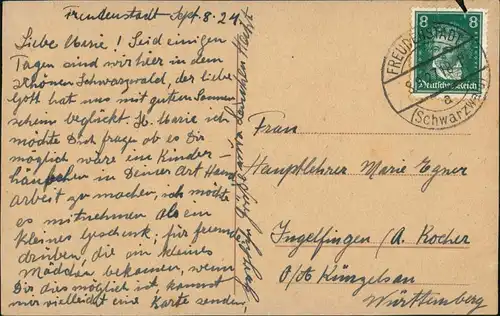 Freudenstadt Sept. 8. 24.
Liebe Marie! Seid einigen
Tagen sind wir hier in dem
schönen Schwarzwald, der liebe
Gott hat uns mit gutem Sonnen
schein beglückt. Lb. Marie ich
möchte Dich frage ob es Dir
möglich wäre ein Kinder-
häubchen in Deiner Art Hand
arbeit zu machen, ich möchte
es mitnehmen als ein
kleines Geschenk, für Freunde
drüben, die ein kleines
Mädchen bekamen, wenn
Dir dies möglich ist, kannst
mir vielleicht eine Karte senden.
Herzlich grüßt
8 8
Deutsches Reich
FREUDENSTADT
a
(Schwarzwald)
Frau
Hauptlehrer Marie Egner
Ingelfingen (A. Kocher
O/A Künzelsau
Württemberg